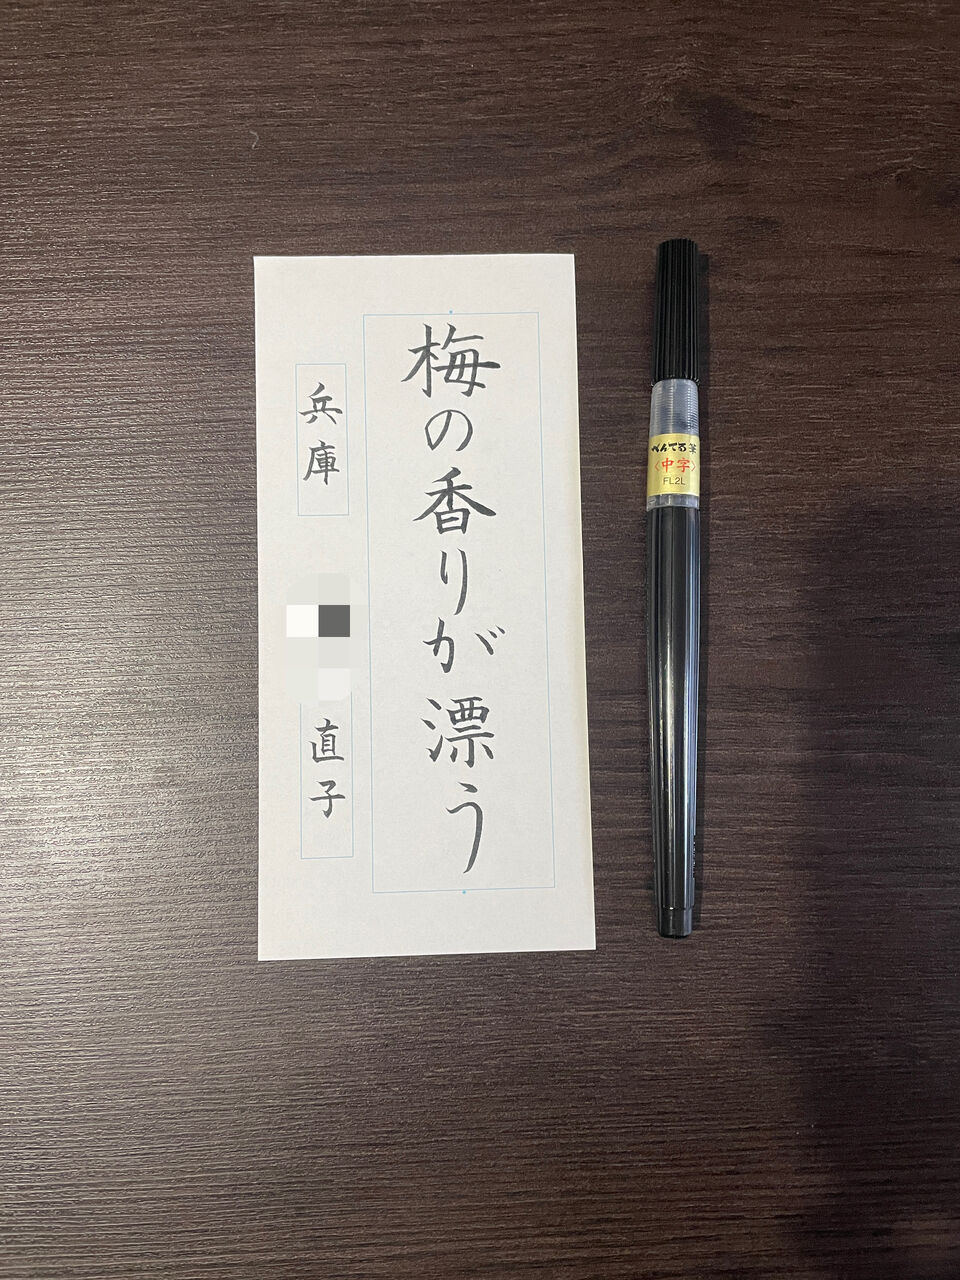 梅の香りが漂う
兵庫
直子
ぺんてる筆
〈中字〉
FL2L